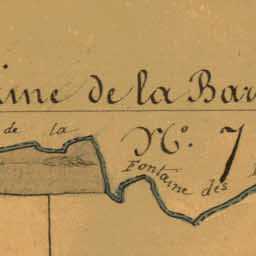 ine de la Bar
de la
N.º 7
Fontaine des